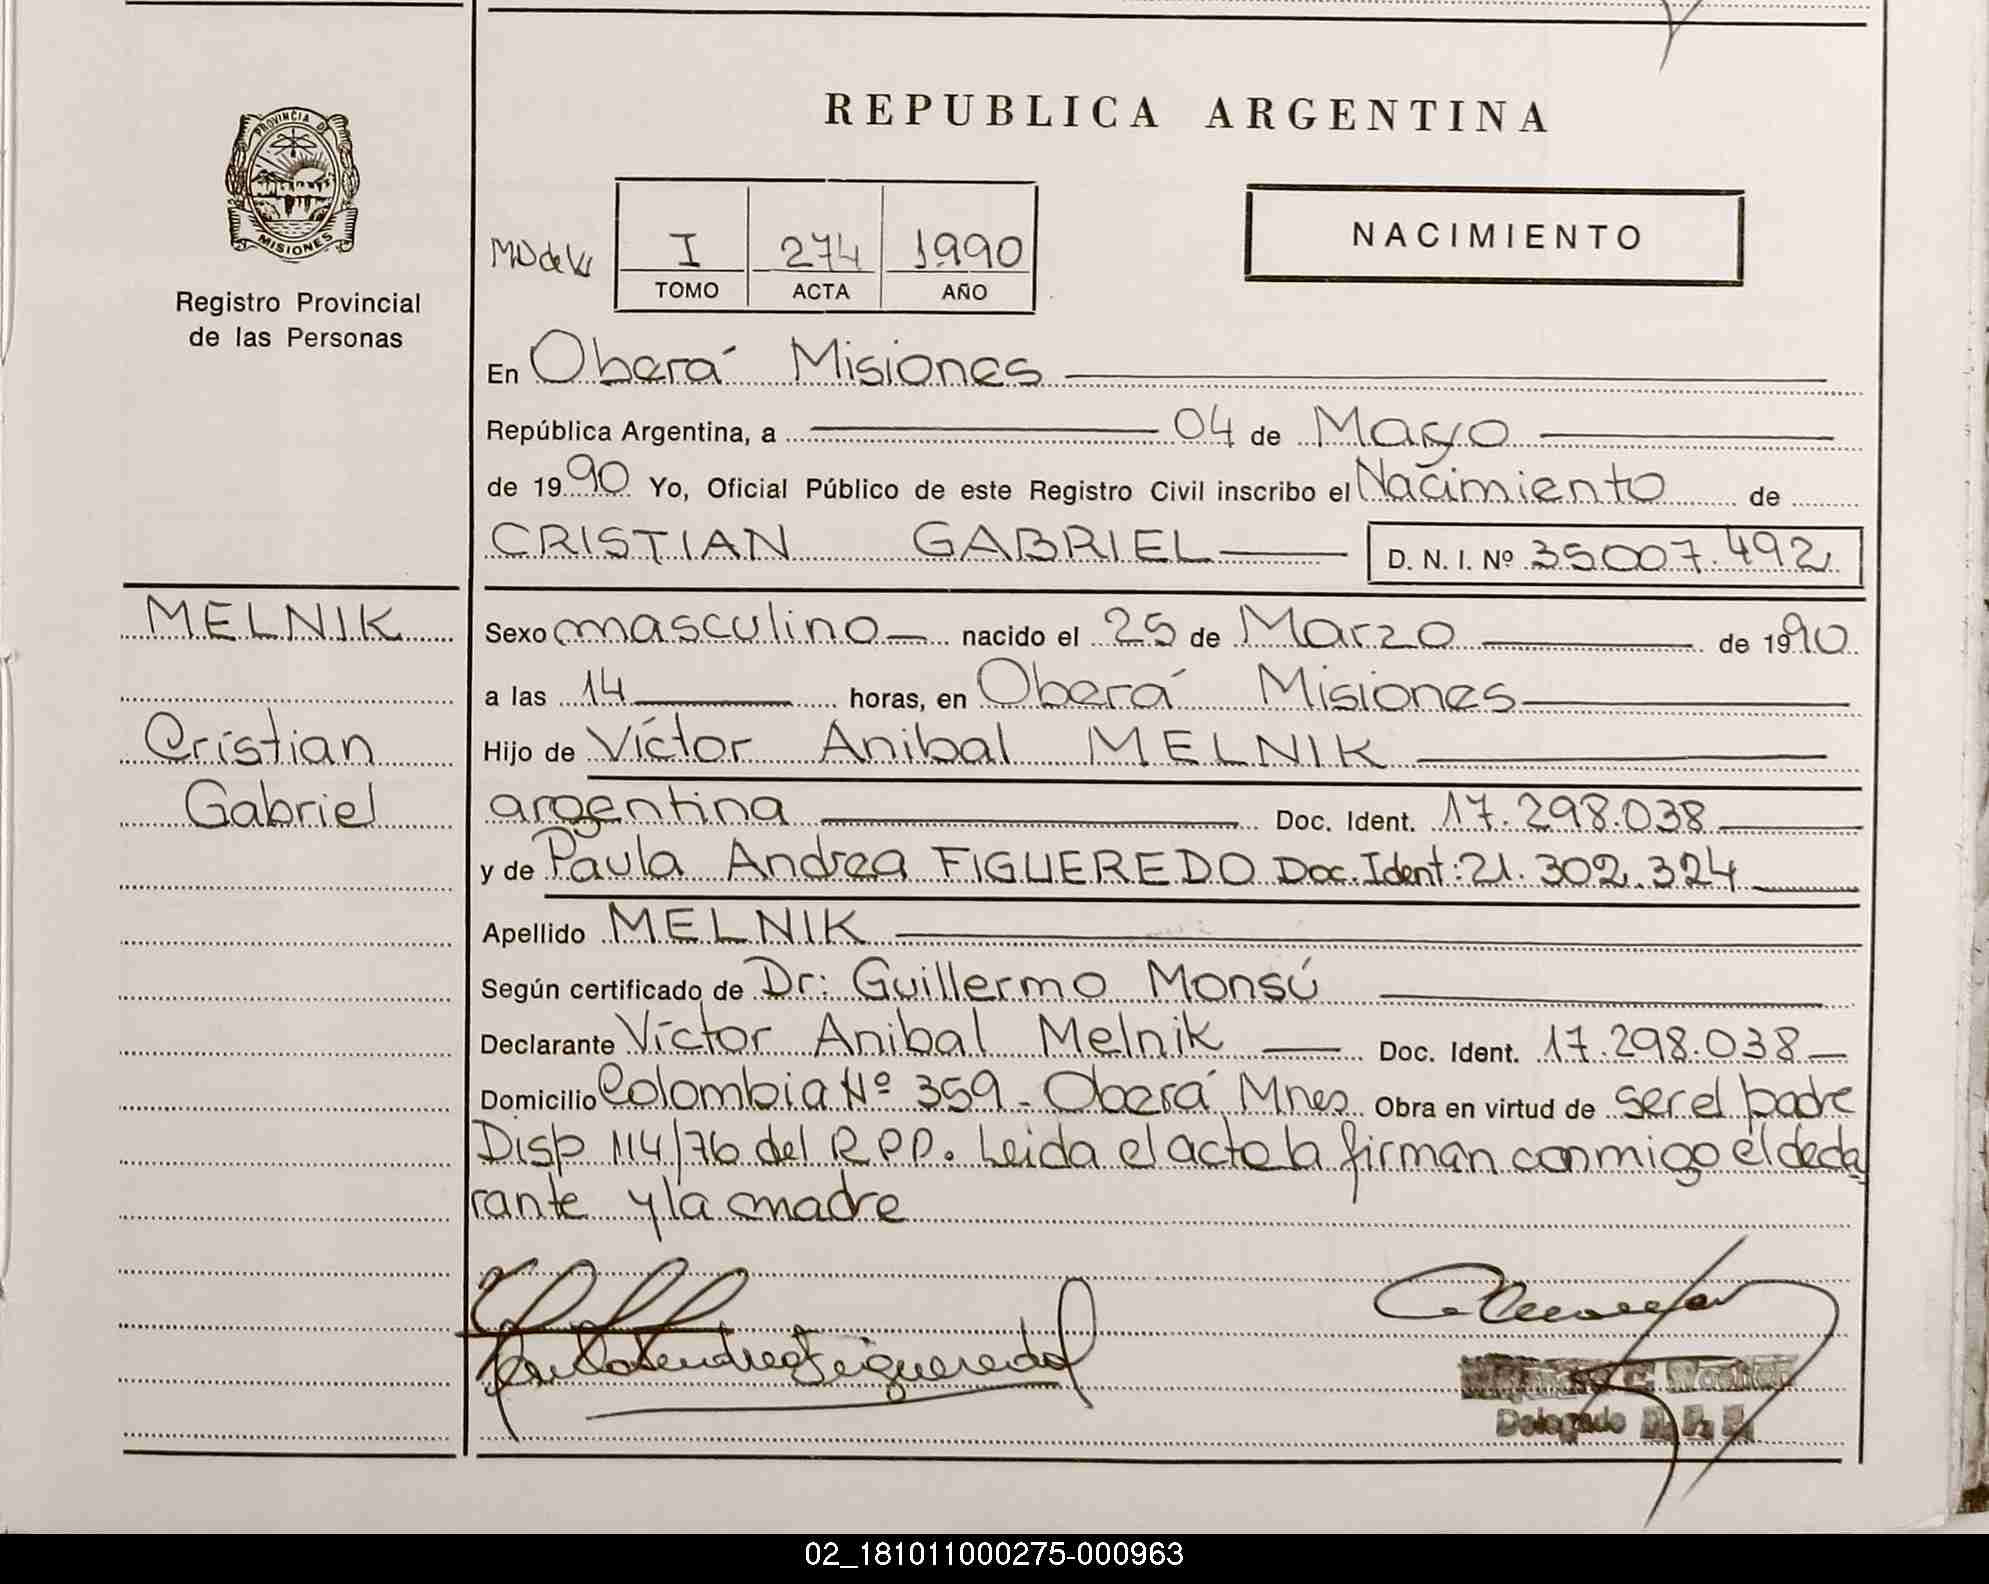 REPUBLICA ARGENTINA
PROVINCIA DE
MISIONES
Registro Provincial
de las Personas
I 274 1990
TOMO ACTA AÑO
NACIMIENTO
En Oberá Misiones
República Argentina, a 04 de Mayo
de 1990 Yo, Oficial Público de este Registro Civil inscribo el Nacimiento de
CRISTIAN GABRIEL D. N. I. Nº 35007.492
MELNIK
Cristian
Gabriel
Sexo masculino nacido el 25 de Marzo de 1990
a las 14 horas, en Oberá Misiones
Hijo de Víctor Anibal MELNIK
argentina Doc. Ident. 17.298.038
y de Paula Andrea FIGUEREDO Doc. Ident: 21.302.324
Apellido MELNIK
Según certificado de Dr: Guillermo Monsú
Declarante Víctor Anibal Melnik Doc. Ident. 17.298.038
Domicilio Colombia Nº 359 - Oberá Mnes Obra en virtud de ser el padre
Disp 114/76 del R.P.P. Leida el acta la firman conmigo el decla
rante y la madre
Paula Andrea Figueredo
Delegado
02_181011000275-000963